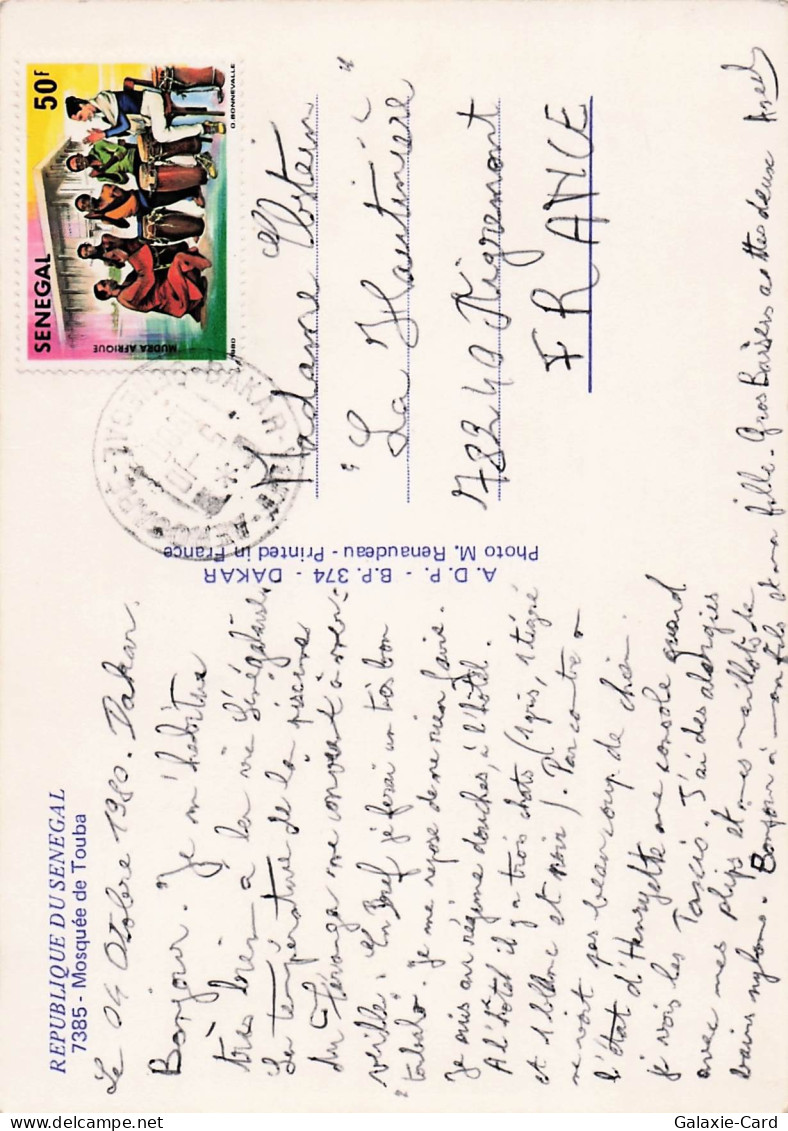 REPUBLIQUE DU SENEGAL
7385 - Mosquée de Touba
Le 04 Octobre 1980. Dakar.
Bonjour. Je m'habitue
très bien à la vie Sénégalaise
La température de la piscine
du Teranga me convient à mer-
veille. En Bref je ferai un très bon
"toubab". Je me repose de ne rien faire.
Je suis au régime douches, à l'hôtel.
A l'hôtel il y a trois chats (1 gris, 1 tigré
et 1 blanc et noir). Par contre on
ne voit pas beaucoup de chien.
l'état d'Henryette me console quand
je vois les Taxis. J'ai des allergies
avec mes slips et mes maillots de
bains nylons. Bonjour à mon fils et ma fille. Gros Baisers à ttes deux
A. D. P. - B.P. 374 - DAKAR
Photo M. Renaudeau - Printed in France
SENEGAL
50F
MUDRA AFRIQUE
1980
O. BONNEVALLE
DAKAR
Madame
"La Hautinière"
78240 Aigremont
FRANCE
Galaxie-Card.com